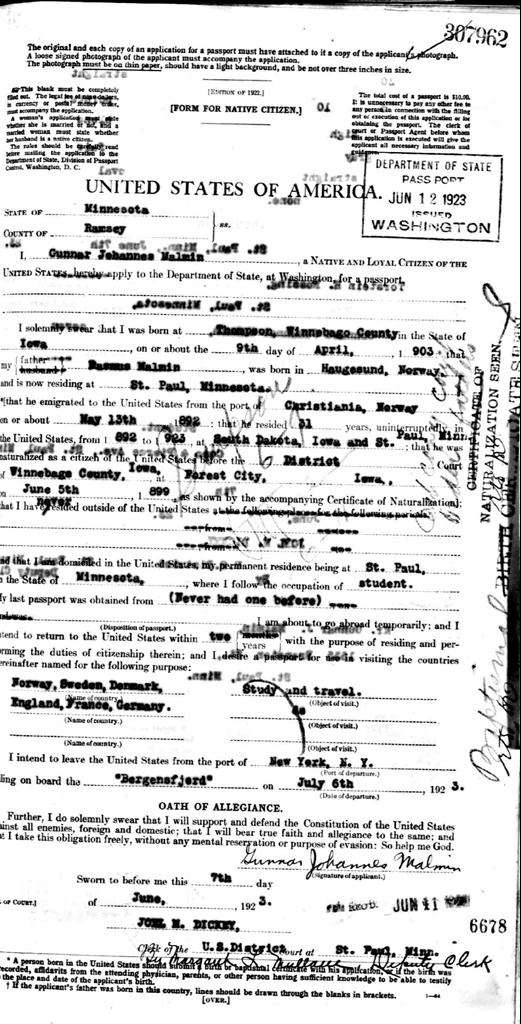 307962
The original and each copy of an application for a passport must have attached to it a copy of the applicant's photograph.
A loose signed photograph of the applicant must accompany the application.
The photograph must be on thin paper, should have a light background, and be not over three inches in size.
This blank must be completely
filled out. The legal fee
in currency or postal money order, must
accompany the application.
A woman's application must state
whether she is married or not, and a
married woman must state whether
her husband is a native citizen.
The rules should be carefully read
before mailing the application to the
Department of State, Division of Passport
Control, Washington, D. C.
[EDITION OF 1922.]
[FORM FOR NATIVE CITIZEN.]
The total cost of a passport is $10.00.
It is unnecessary to pay any other fee to
any person in connection with the filling
out or execution of this application or for
obtaining the passport. The clerk of
court or Passport Agent before whom
this application is executed will give the
applicant all necessary information and
guidance.
DEPARTMENT OF STATE
PASSPORT
JUN 12 1923
ISSUED
WASHINGTON
UNITED STATES OF AMERICA.
STATE OF Minnesota
COUNTY OF Ramsey
ss.
I, Gunnar Johannes Malmin, a NATIVE AND LOYAL CITIZEN OF THE
UNITED STATES, hereby apply to the Department of State, at Washington, for a passport.
I solemnly swear that I was born at Thompson, Winnebago County in the State of
Iowa on or about the 9th day of April, 1903 that
my {father husband} Rasmus Malmin, was born in Haugesund, Norway,
and is now residing at St. Paul, Minnesota.
*[that he emigrated to the United States from the port of Christiania, Norway
on or about May 13th 1892; that he resided 31 years, uninterruptedly, in
the United States, from 1892 to 1923, at South Dakota, Iowa and St. Paul, Minn.; that he was
naturalized as a citizen of the United States before the District Court
of Winnebago County, Iowa, at Forest City, Iowa,
on June 5th 1899, as shown by the accompanying Certificate of Naturalization];
that I have never resided outside of the United States at the following places for the following periods:
from
from
and that I am domiciled in the United States, my permanent residence being at St. Paul,
in the State of Minnesota, where I follow the occupation of student.
My last passport was obtained from (Never had one before)
(Disposition of passport.)
I am about to go abroad temporarily; and I
intend to return to the United States within two {months years} with the purpose of residing and per-
forming the duties of citizenship therein; and I desire a passport for use in visiting the countries
hereinafter named for the following purpose:
Norway, Sweden, Denmark, Study and travel.
(Name of country.) (Object of visit.)
England, France, Germany. do
(Name of country.) (Object of visit.)
(Name of country.) (Object of visit.)
I intend to leave the United States from the port of New York, N. Y.
(Port of departure.)
sailing on board the "Bergensfjord" on July 6th, 1923.
(Date of departure.)
OATH OF ALLEGIANCE.
Further, I do solemnly swear that I will support and defend the Constitution of the United States
against all enemies, foreign and domestic; that I will bear true faith and allegiance to the same; and
that I take this obligation freely, without any mental reservation or purpose of evasion: So help me God.
Gunnar Johannes Malmin
(Signature of applicant.)
Sworn to before me this 7th day
[SEAL OF COURT.] of June, 1923.
JUN 11
6678
JOEL M. DICKEY,
Clerk of the U.S. District Court at St. Paul, Minn.
By Margaret Deputy Clerk
* A person born in the United States should submit a birth or baptismal certificate with his application, or if the birth was
not recorded, affidavits from the attending physician, parents, or other person having sufficient knowledge to be able to testify
to the place and date of the applicant's birth.
† If the applicant's father was born in this country, lines should be drawn through the blanks in brackets.
[OVER.]
CERTIFICATE OF
NATURALIZATION SEEN.
Baptismal
BIRTH